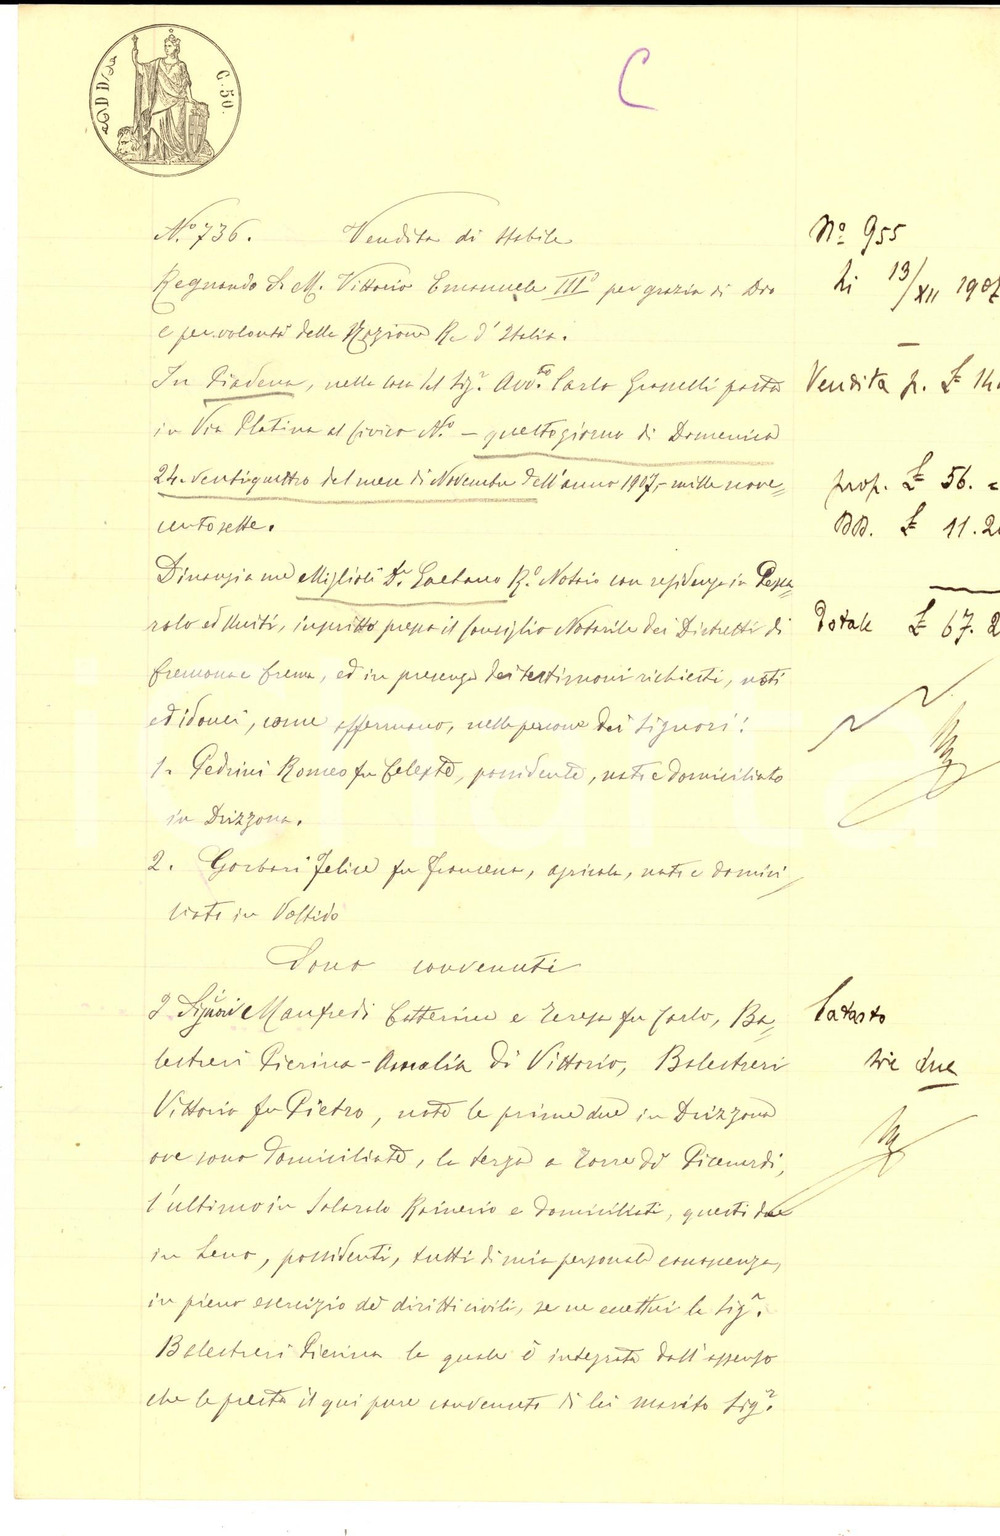 C. 50.
C
N.º 736. Vendita di Stabile
Regnando S. M. Vittorio Emanuele IIIº per grazia di Dio
e per volontà della Nazione Re d'Italia.
In Piadena, nella casa del Sig.r Avv.to Carlo Gronelli posta
in Via Platina al civico N.º – questo giorno di Domenica
24. ventiquattro del mese di Novembre dell'anno 1907,- mille nove=
cento sette.
Dinanzi a me Miglioli Dr. Gaetano Rº. Notaio con residenza in Pesca=
rolo ed Uniti, inscritto presso il Consiglio Notarile dei Distretti di
Cremona e Crema, ed in presenza dei testimoni richiesti, noti
ed idonei, come affermano, nelle persone dei Signori:
1. Pedrini Romeo fu Celeste, possidente, nato e domiciliato
in Drizzona.
2. Gorbari Felice fu Francesco, agricola, nato e domici
liato in Voltido
Sono convenuti
I Signori Manfredi Catterina e Teresa fu Carlo, Ba=
lestreri Pierina-Amalia di Vittorio, Balestreri
Vittorio fu Pietro, nate le prime due in Drizzona
ove sono domiciliate, la terza a Torre de' Picenardi,
l'ultimo in Solarolo Rainerio e domiciliati, questi due
in Leno, possidenti, tutti di mia personale conoscenza,
in pieno esercizio dei diritti civili, se ne eccettui la Sig.a
Balestreri Pierina la quale è integrata dall'assenso
che le presta il qui pure convenuto di lei marito Sig.r
Nº 955
li 13/XII 1907
Vendita p. £ 140
prop. £ 56. =
DD. £ 11.20
Totale £ 67.2
Catasto
lire due